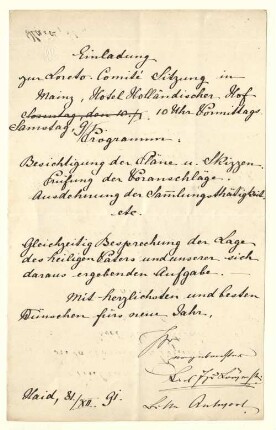 Einladung
zur Loreto-Comité Sitzung in
Mainz, Hotel Holländischer Hof
Sonntag, den 10/I. 10 Uhr Vormittags
Samstag, 9/I.
Programm.
Besichtigung der Pläne u. Skizzen
Prüfung der Voranschläge.
Ausdehnung der Samlungsthätigkeit
etc.
Gleichzeitig Besprechung der Lage
des heiligen Vaters und unserer sich
daraus ergebenden Aufgabe.
Mit herzlichsten und besten
Wünschen fürs neue Jahr,
Ihr
Haid, 31/XII. 91.
Bitte Antwort.